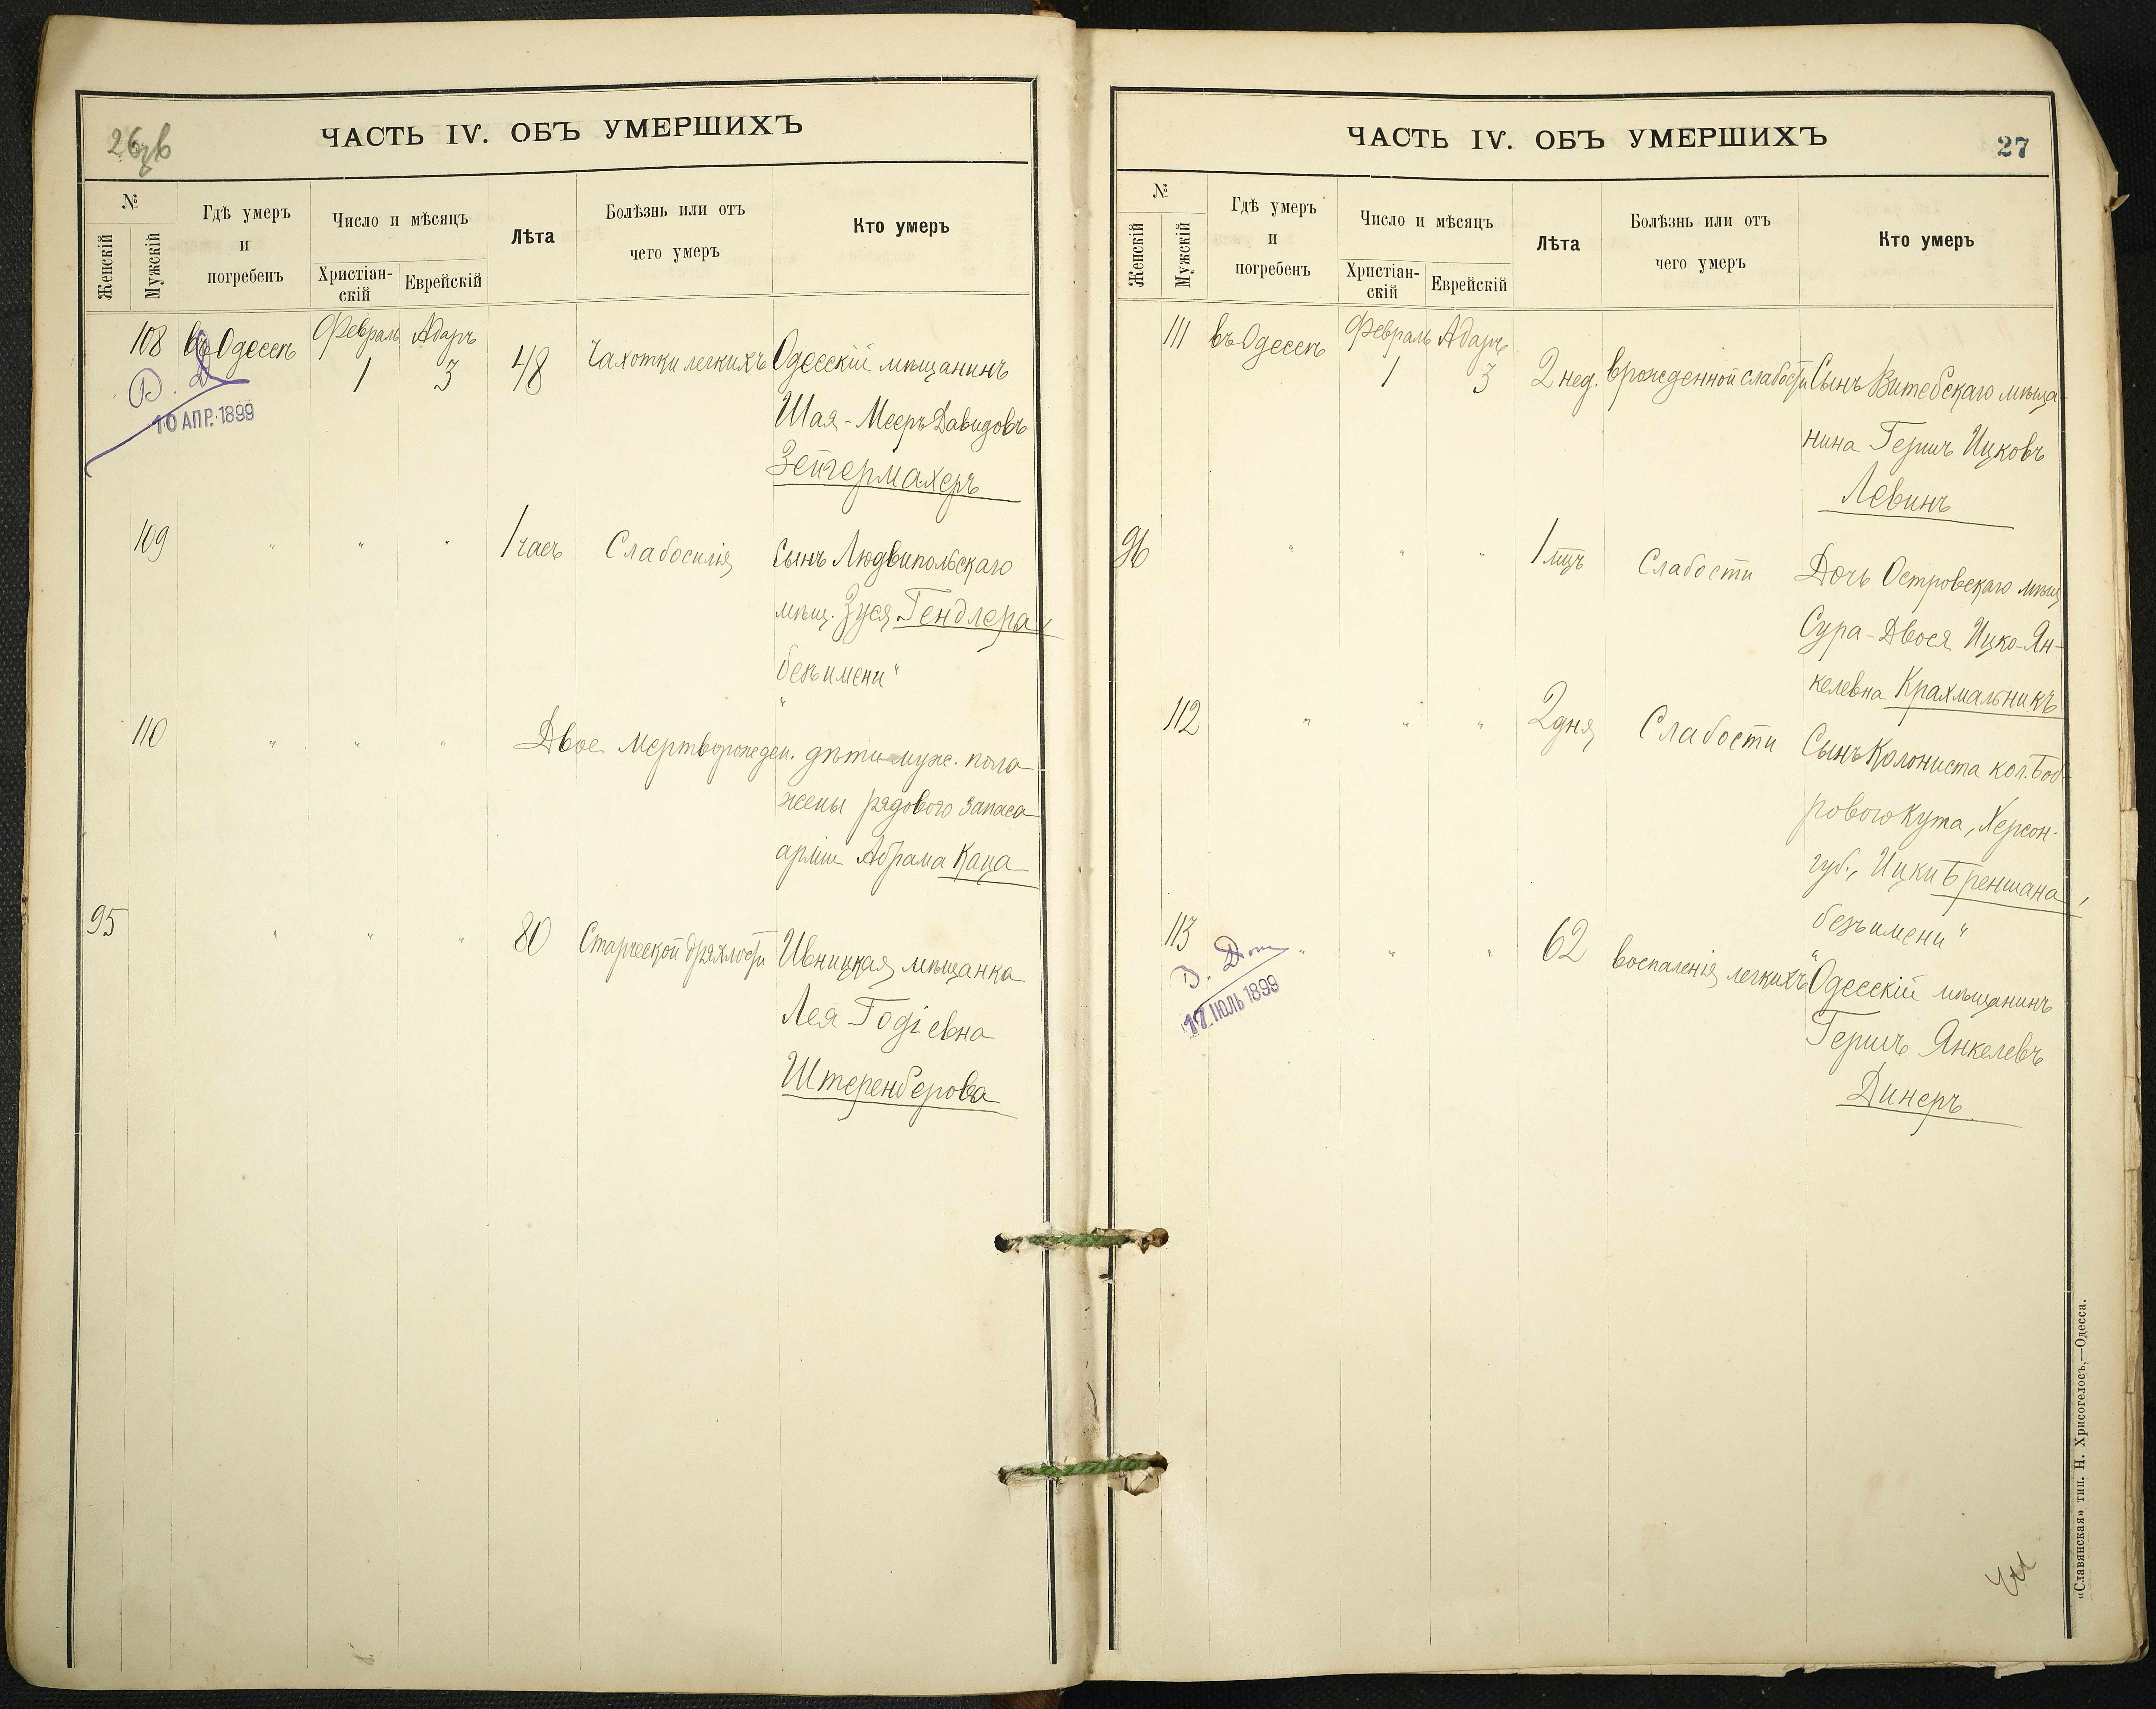 26зв
ЧАСТЬ IV. ОБЪ УМЕРШИХЪ
№
Женскій
Мужскій
Гдѣ умеръ
и
погребенъ
Число и мѣсяцъ
Христіан-
скій
Еврейскій
Лѣта
Болѣзнь или отъ
чего умеръ
Кто умеръ
108 въ Одессѣ Февраль Адаръ
1 3 48 Чахотки легкихъ Одесскій мѣщанинъ
10 АПР. 1899
Шая-Мееръ Давидовъ
Зейгермахеръ
109 " " " 1 часъ Слабосилія Сынъ Людвипольскаго
мѣщ. Зуся Гендлера,
"безъ имени"
110 " " " Двое мертворожден. дѣти муж. пола
жены рядового запаса
арміи Абрама Каца
95 " " " 80 Старческой дряхлости Ивницкая мѣщанка
Лея Годіевна
Штеренберова
ЧАСТЬ IV. ОБЪ УМЕРШИХЪ
27
№
Женскій
Мужскій
Гдѣ умеръ
и
погребенъ
Число и мѣсяцъ
Христіан-
скій
Еврейскій
Лѣта
Болѣзнь или отъ
чего умеръ
Кто умеръ
111 въ Одессѣ Февраль Адаръ
1 3 2 нед. врожденной слабости Сынъ Витебскаго мѣща-
нина Гершъ Ицковъ
Левинъ
96 " " " 1 мцъ Слабости Дочь Островскаго мѣщ.
Сура-Двося Ицко-Ян-
келевна Крахмальникъ
112 " " " 2 дня Слабости Сынъ Колониста кол. Боб-
рового Кута, Херсон.
губ., Ицки Бреншана,
"безъ имени"
113 " " " 62 воспаленія легкихъ Одесскій мѣщанинъ
17 ІЮЛЬ 1899
Гершъ Янкелевъ
Динеръ
«Славянская» тип. Н. Хрисогелосъ,—Одесса.